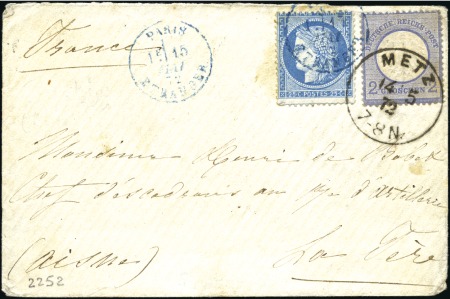 France
PARIS
ETRANGER
25 C POSTES 25 C
DEUTSCHE REICHS-POST
2 GROSCHEN 2
METZ
14 5
72
7-8 N.
Monsieur Henri de
Chef d'escadrons au d'artillerie
La Fère
(aisne)
2252